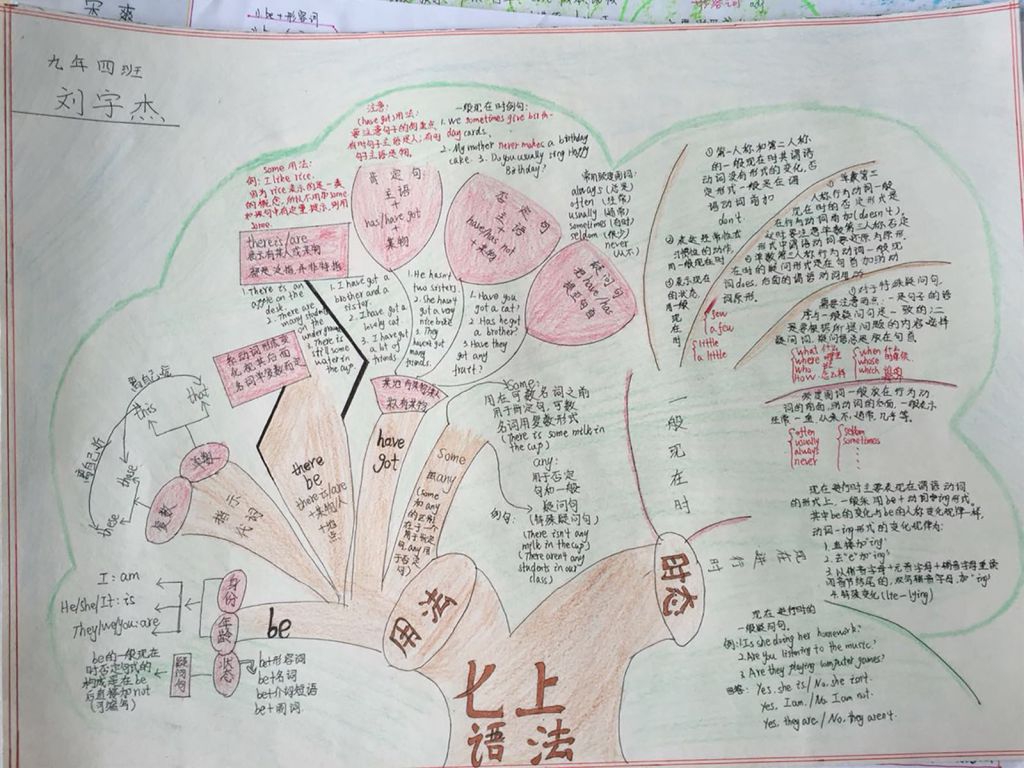 be+形容词
九年四班
刘宇杰
注意:
(have got)用法:
要注意句子的侧重点
有时句子主语是人;有时
句子主语是物。
一般现在时例句:
1. We sometimes give birth-
day cards.
2. My mother never makes a birthday
cake. 3. Do you usually sing Happy
Birthday?
some 用法:
例: I like rice.
因为rice表示的是一类
的概念,所以不用加some
some.
常用频度副词:
always (总是)
often (经常)
usually (通常)
sometimes (有时)
seldom (很少)
never
(从不)
肯定句:
主语
+
has/have got
+
某物
否定句
主语
+
have/has not
+某物
疑问句
把have/has
提至句首
there is/are
表示有某人或某物
1. There is an
apple on the
desk.
2. There are
many students
on the
underground.
3. There is
still some
water in
the cup.
1. I have got a
brother and a
sister.
2. I have got a
lovely cat.
3. I have got
a lot of
friends.
1. He hasn't
two sisters.
2. She hasn't
got a very
nice bike.
3. They
haven't got
many
friends.
1. Have you
got a cat?
2. Has he got
a brother?
3. Have they
got any
fruit?
be动词形式变
化视其后面
名词单复数而定
某地有某物某人
离自己远
this
that
离自己近
those
these
单数
复数
指示
代词
there
be
there is/are
+某物/人
+地点
have
got
Some
和any
(some
和any
的区别
在于一个
用于肯定
句,any用
于否定
句)
Some:
用在可数名词之前
用于肯定句,可数
名词用复数形式
(There is some milk in
the cup)
any:
用于否定
句和一般
疑问句
(特殊疑问句)
例句:
(There isn't any
milk in the cup)
(There aren't any
students in our
class)
I: am
He/she/It: is
They/we/you: are
be的一般现在
时否定句式的
构成是在be
后直接加not
(可缩写)
身份
年龄
状态
疑问句
be
be+形容词
be+名词
be+介词短语
be+副词
用法
时态
七上
语法
一般现在时
现在进行时
①第一人称和第二人称
的一般现在时其谓语
动词没有形式的变化,否
定形式一般是在谓
语动词前加
don't.
②表达经常性或
习惯性的动作,
用一般现在时
③表示现在
的状态
用一般
现在
时
①单数第三
人称行为动词一般
现在时的否定形式是
在行为动词前加(doesn't),
这时要注意单数第三人称否定
形式中谓语动词要还原为原形
②单数第三人称行为动词一般现
在时的疑问形式是在句首加助动
词does,后面的谓语动词用动
词原形。
few
a few
little
a little
①对于特殊疑问句,
需要注意两点:一是句子的语
序与一般疑问句是一致的;二
是要根据所提问题的内容选择
疑问词,疑问词总是放在句首
what 什么
where 哪里
who 谁
How 怎么样
when 什么
whose 谁的
which
频度副词一般放在行为动
词的前面, be动词的后面,一般表示
经常、一直、从来不、通常、几乎等。
often
usually
always
never
seldom
sometimes
现在进行时主要表现在谓语动词
的形式上,一般采用be+动词ing形式,
其中be的变化与be的人称变化规律一样,
动词-ing形式的变化规律有:
1. 直接加"ing"
2. 去"e"加"ing"
3. 以辅音字母+元音字母+辅音字母重读
闭音节结尾的,双写辅音字母,加"ing"
4. 特殊变化(lie-lying)
现在进行时的
一般疑问句。
例: 1. Is she doing her homework?
2. Are you listening to the music?
3. Are they playing computer games?
回答: Yes, she is./No, she isn't.
Yes, I am./No, I am not.
Yes, they are./No, they aren't.